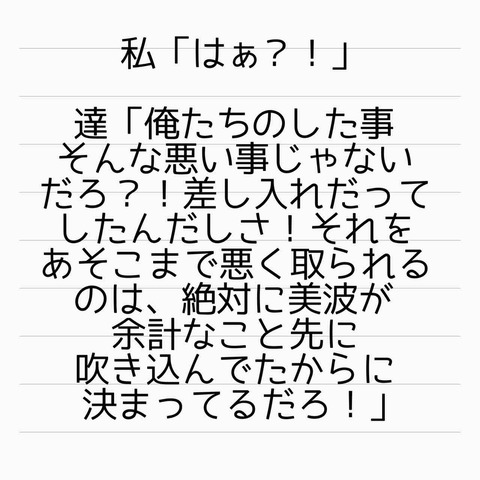 私「はぁ？！」
達「俺たちのした事
そんな悪い事じゃない
だろ？！差し入れだって
したんだしさ！それを
あそこまで悪く取られる
のは、絶対に美波が
余計なこと先に
吹き込んでたからに
決まってるだろ！」